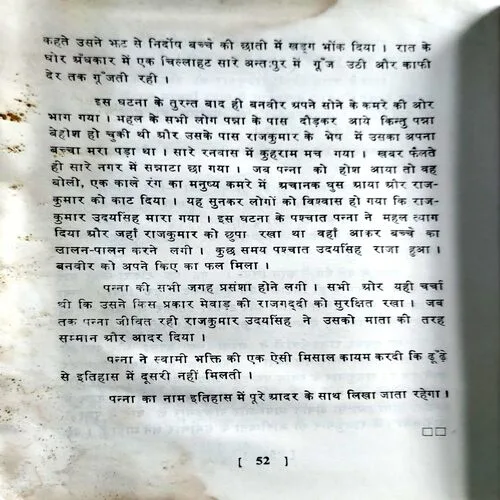 कहते उसने झट से निर्दोष बच्चे की छाती में खड्ग भोंक दिया । रात के
घोर अँधकार में एक चिल्लाहट सारे अन्तःपुर में गूँज उठी और काफी
देर तक गूँजती रही ।
इस घटना के तुरन्त बाद ही बनवीर अपने सोने के कमरे की ओर
भाग गया । महल के सभी लोग पन्ना के पास दौड़कर आये किन्तु पन्ना
बेहोश हो चुकी थी और उसके पास राजकुमार के भेष में उसका अपना
बच्चा मरा पड़ा था । सारे रनवास में कुहराम मच गया । खबर फैलते
ही सारे नगर में सन्नाटा छा गया । जब पन्ना को होश आया तो वह
बोली, एक काले रंग का मनुष्य कमरे में अचानक घुस आया और राज-
कुमार को काट दिया । यह सुनकर लोगों को विश्वास हो गया कि राज-
कुमार उदयसिंह मारा गया । इस घटना के पश्चात पन्ना ने महल त्याग
दिया और जहाँ राजकुमार को छुपा रखा था वहाँ आकर बच्चे का
लालन-पालन करने लगी । कुछ समय पश्चात उदयसिंह राजा हुआ ।
बनवीर को अपने किए का फल मिला ।
पन्ना की सभी जगह प्रसंशा होने लगी । सभी ओर यही चर्चा
थी कि उसने किस प्रकार मेवाड़ की राजगद्दी को सुरक्षित रखा । जब
तक पन्ना जीवित रही राजकुमार उदयसिंह ने उसको माता की तरह
सम्मान और आदर दिया ।
पन्ना ने स्वामी भक्ति की एक ऐसी मिसाल कायम करदी कि ढूँढ़े
से इतिहास में दूसरी नहीं मिलती ।
पन्ना का नाम इतिहास में पूरे आदर के साथ लिखा जाता रहेगा ।
[ 52 ]